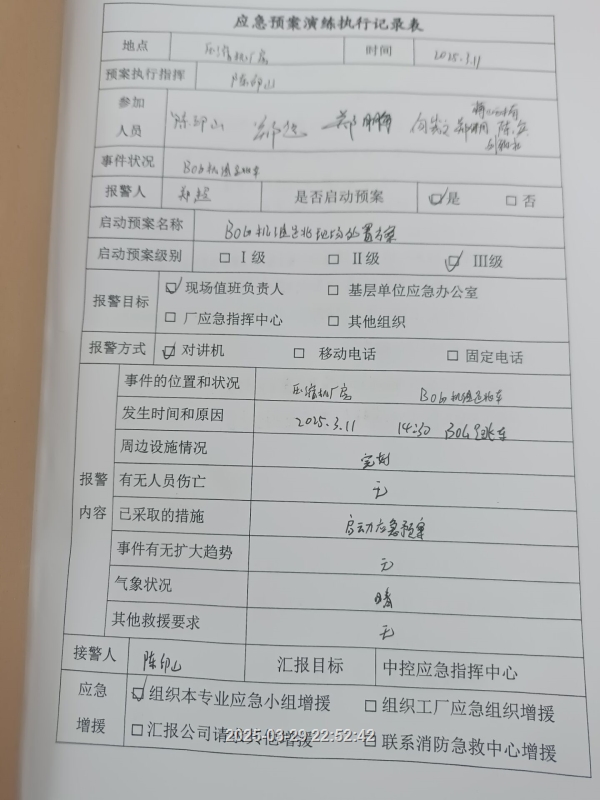 应急预案演练执行记录表
地点 压缩机厂房 时间 2025.3.11
预案执行指挥 陈印山
参加人员 陈印山 郑超 郑鹏
事件状况 BOG机
报警人 郑超 是否启动预案 ☑是 □否
启动预案名称 BOG机 处置方案
启动预案级别 □ Ⅰ级 □ Ⅱ级 ☑ Ⅲ级
报警目标 ☑现场值班负责人 □ 基层单位应急办公室
□ 厂应急指挥中心 □ 其他组织
报警方式 ☑对讲机 □ 移动电话 □ 固定电话
报警内容
事件的位置和状况 压缩机厂房 BOG机
发生时间和原因 2025.3.11 14:30 BOG 跳车
周边设施情况 完好
有无人员伤亡 无
已采取的措施 启动应急预案
事件有无扩大趋势 无
气象状况 晴
其他救援要求 无
接警人 陈印山 汇报目标 中控应急指挥中心
应急增援 ☑组织本专业应急小组增援 □组织工厂应急组织增援
□汇报公司请求其他增援 □联系消防急救中心增援
2025-03-29 22:52:42